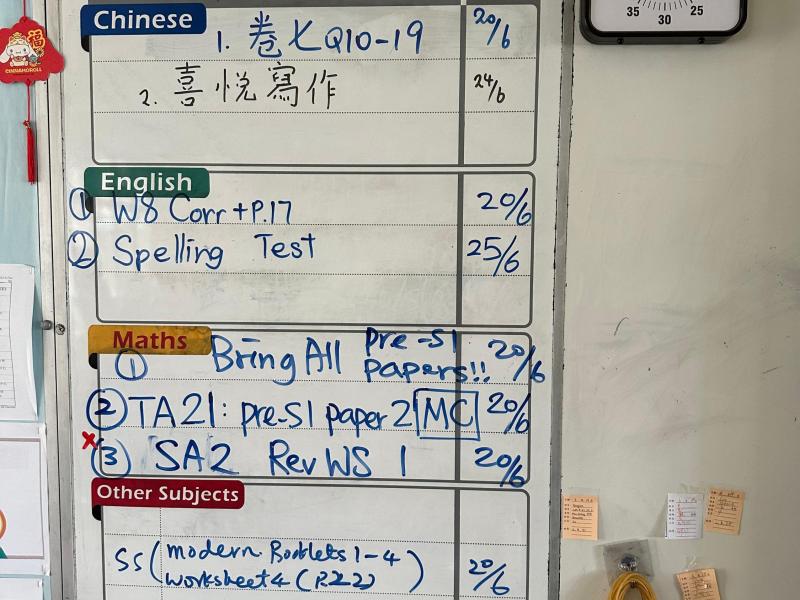 35 30 25
福
CINNAMOROLL
Chinese
1. 卷七 Q10-19 20/6
2. 喜悅寫作 24/6
English
① W8 Corr + P.17 20/6
② Spelling Test 25/6
Maths
① Bring All pre-S1 papers!! 20/6
② TA21: pre-S1 paper 2 MC 20/6
x ③ SA2 Rev WS 1 20/6
Other Subjects
SS (modern Booklets 1-4
worksheet 4 (P.22) ) 20/6